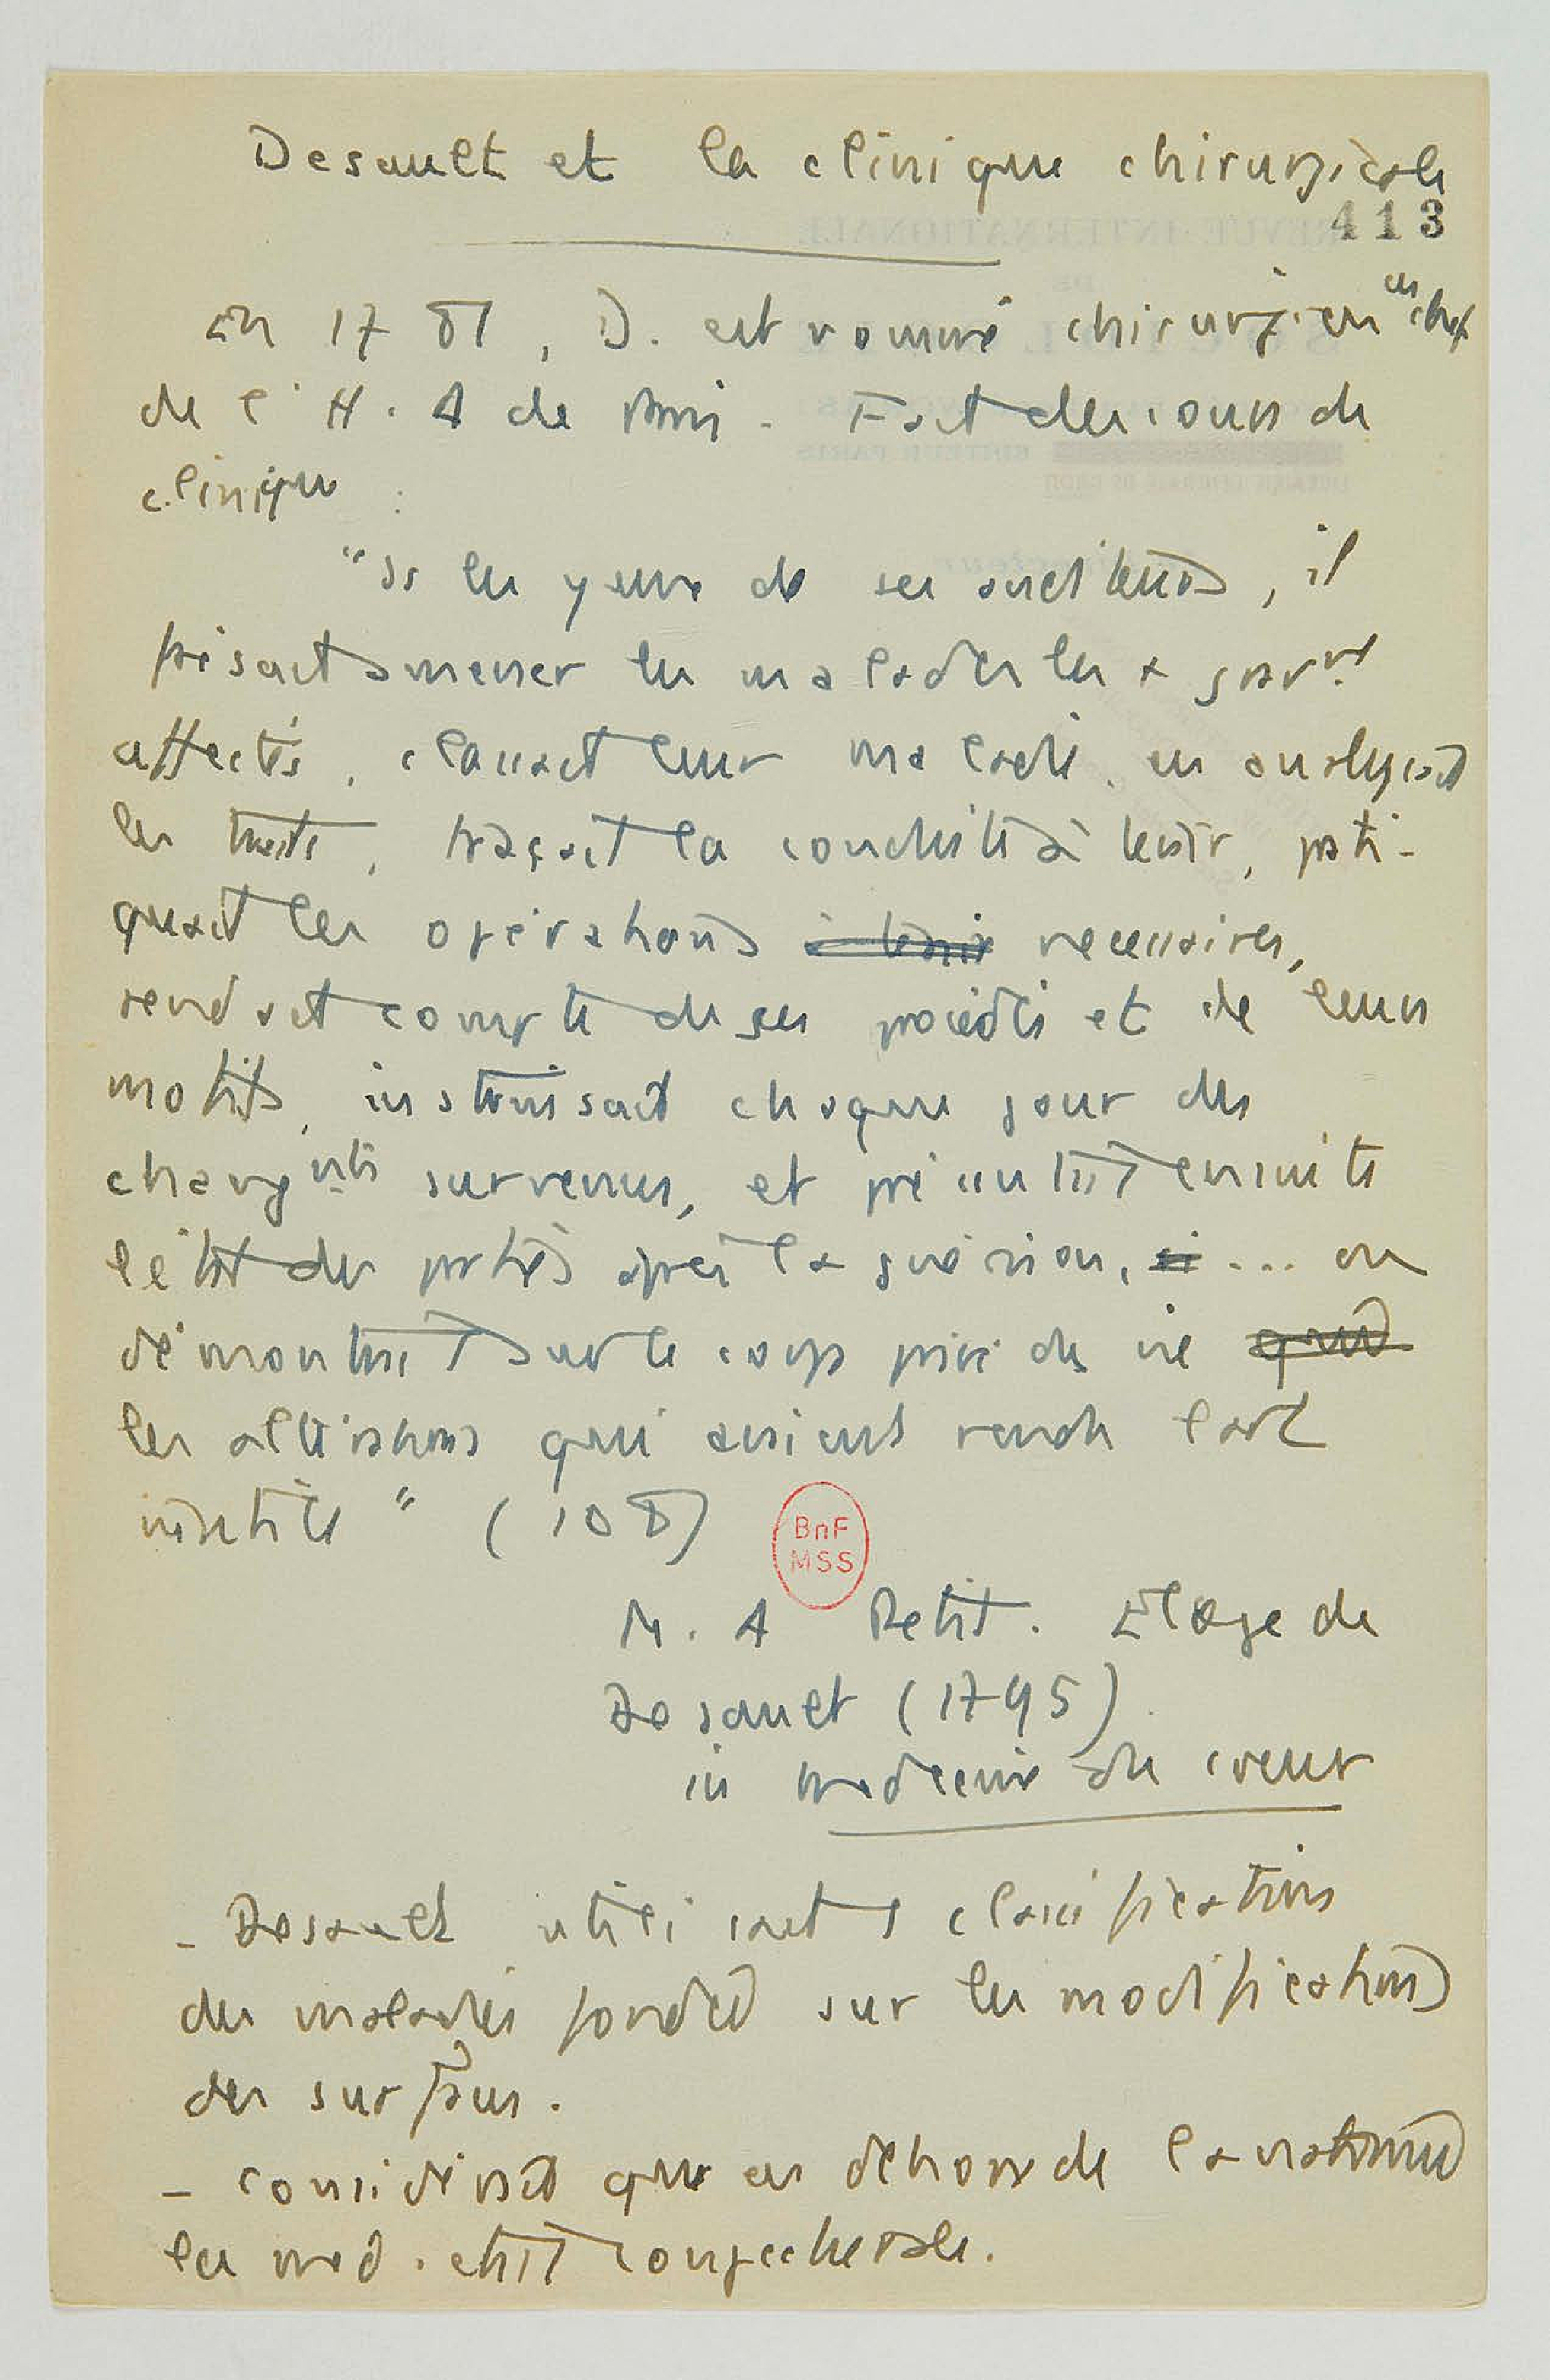 Desault et la clinique chirurgicale
413
En 1781, D. est nommé chirurgien en chef
de l'H. A de Paris. Fait des cours de
clinique :
"Ss les yeux de ses auditeurs, il
faisait amener les malades les + gravᵗ
affectés, classait leur maladie, en analysait
les traits, traçait la conduite à tenir, prati-
quait les opérations à tenir nécessaires,
rendait compte de ses procédés et de leurs
motifs, instruisait chaque jour des
changᵐᵗˢ survenus, et présentait ensuite
l'état des parties après la guérison, si ... ou
démontrait sur le corps privé de vie quand
les altérations qui avaient rendu l'art
inutile" (108)
BnF
MSS
M. A Petit. Eloge de
Desault (1795)
in Médecine du coeur
- Desault utilisait classifications
des maladies fondées sur les modifications
des surfaces.
- considérait que en dehors de l'anatomie
la méd. était conjecturale.